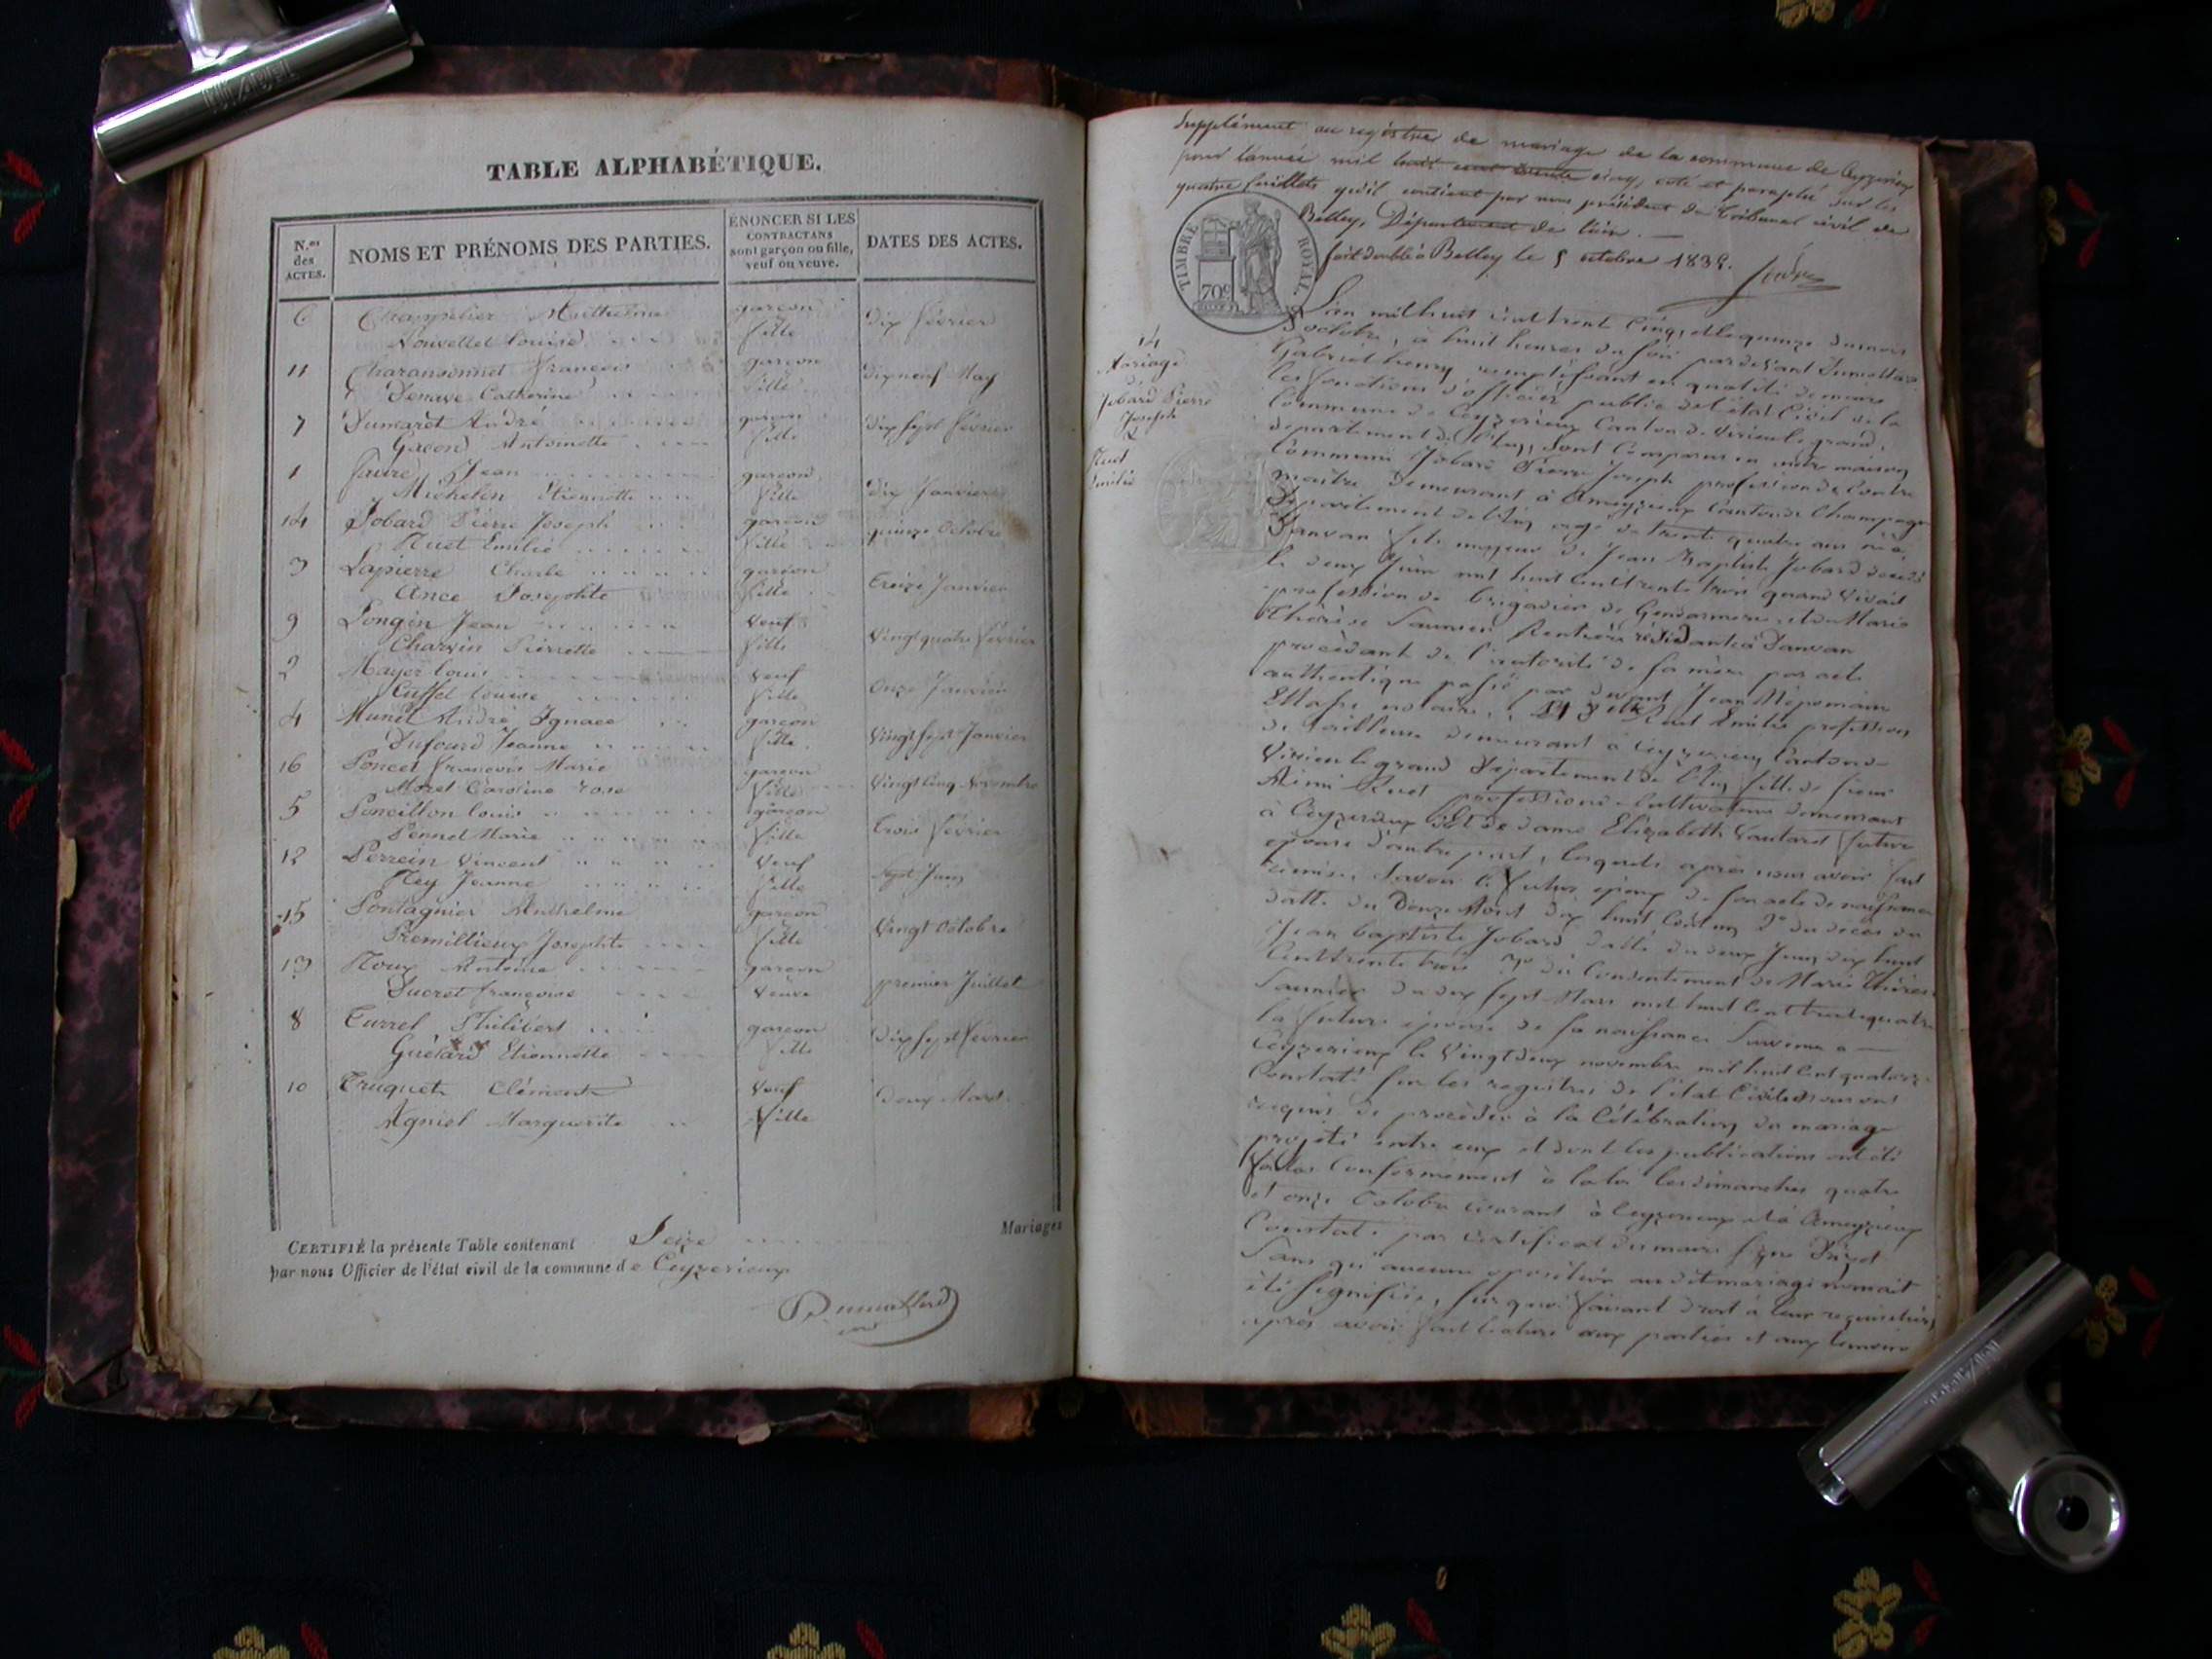 TABLE ALPHABÉTIQUE.
N.os des ACTES.
NOMS ET PRÉNOMS DES PARTIES.
ÉNONCER SI LES CONTRACTANS sont garçon ou fille, veuf ou veuve.
DATES DES ACTES.
6 Anthelme garçon dix Février
Louise fille
11 Charansonnet François garçon dix neuf May
Catherine fille
7 Dumaret André garçon dix sept Février
Gacon Antoinette fille
1 Faure Jean garçon dix Janvier
Michelin Etiennette fille
14 Jobard Pierre Joseph garçon quinze Octobre
Ruet Emilie fille
3 Lapierre Charle garçon treize Janvier
Ance Josephte fille
9 Longin Jean Veuf Vingt quatre Février
Charvin Pierrette fille
2 Mayer Louis Veuf Onze Janvier
Louise fille
4 Munet André Ignace garçon Vingt sept Janvier
Dufourd Jeanne fille
16 Poncet François Marie garçon Vingt Cinq Novembre
Moret Caroline rose fille
5 Poncillon Louis garçon trois Février
Pennet Marie fille
12 Perrein Vincent Veuf sept Juin
Rey Jeanne fille
15 Pontagnier Anthelme garçon Vingt Octobre
Premillieux Josephte fille
13 Roux Antoine garçon premier Juillet
Ducret Françoise Veuve
8 Turrel Philibert garçon dix sept Février
Guétard Etiennette fille
10 Truguet Clément Veuf deux Mars
Agniel Marguerite fille
Mariages
CERTIFIÉ la présente Table contenant Seize
par nous Officier de l'état civil de la commune de Ceyzerieux
Supplément au registre de mariage de la commune de Ceyzerieu
pour l'année mil huit cent trente cinq, coté et paraphé sur les
quatre feuillets qu'il contient par nous président du tribunal civil de
Belley, Département de l'ain.
fait double à Belley le 5 octobre 1835.
TIMBRE ROYAL.
70c
14
Mariage
Jobard Pierre
Joseph
&
Ruet
Emilie
L'an mil huit cent trent Cinq, et le quinze du mois
d'octobre, à huit heures du soir par devant
Gabriel henry remplissant en qualité de maire
les fonctions d'officier public de l'état Civil de la
Commune de Ceyzerieux Canton de Virieu le grand,
département de l'Ain, sont Comparus en notre maison
Commune Jobard Pierre Joseph profession de Contre
maître demeurant à Ameyzieux Canton de Champagne
Département de l'Ain agé de trente quatre ans né à
fils majeur de Jean Baptiste Jobard décédé
le deux Juin mil huit Cent trente trois quand vivait
profession de brigadier de Gendarmerie et de Marie
Thérèse Saunier Rentière résidante à
procédant de l'autorité de sa mère par acte
authentique passé par devant Jean Népomucin
notaire, Ruet Emilie profession
de tailleuse demeurant à Ceyzerieux Canton de
Virieu le grand Département de l'Ain fille de
Ruet profession de Cultivateur demeurant
à Ceyzerieux et de dame Elizabeth future
épouse d'autre part, lesquels après nous avoir fait
remise, savoir le futur époux de son acte de naissance
datte du Douze Août dix huit Cent un 2° du décès de
Jean baptiste Jobard datte du deux Juin dix huit
Cent trente trois 3° du Consentement de Marie Thérèse
Saunier du dix sept Mars mil huit Cent trente quatre
la future épouse de sa naissance Survenue à
Ceyzerieux le Vingt deux novembre mil huit Cent quatorze
Constaté sur les registres de l'état Civil nous ont
requis de procéder à la Célébration du mariage
projeté entre eux et dont les publications ont été
faites Conformément à la loi les dimanches quatre
et onze Octobre Courant à Ceyzerieux et à Ameyzieux
Constaté par Certificat du maire signé
Sans qu'aucune opposition au dit mariage nous ait
été signifiée, sur quoi faisant droit à leur réquisition
après avoir fait lecture aux parties et aux témoins